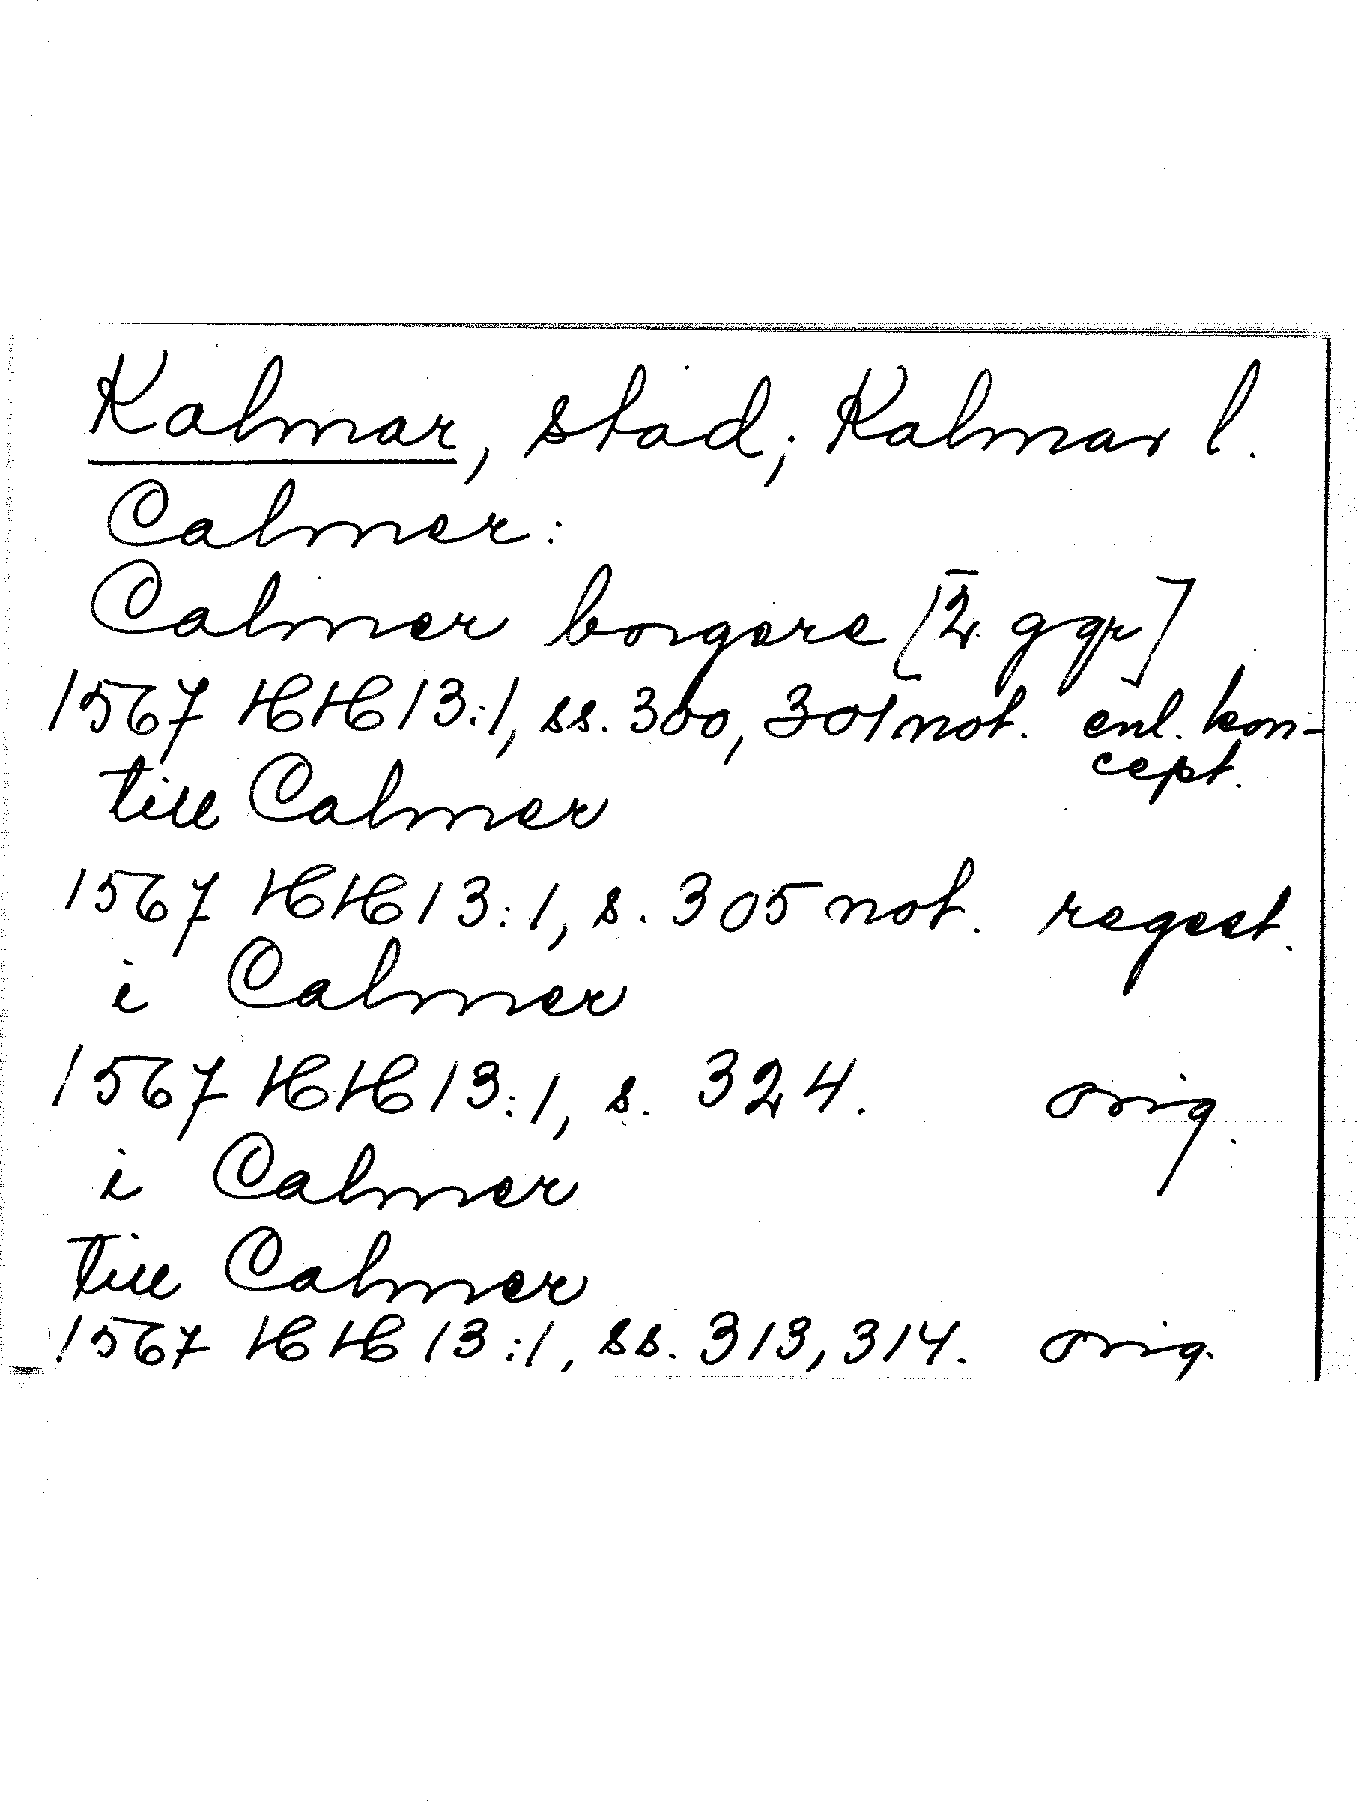 Kalmar, stad; Kalmar l.
Calmer:
Calmer borgere [2 ggr]
1567 HH 13:1, ss. 300, 301 not. enl. kon-
cept.
till Calmer
1567 HH 13:1, s. 305 not. regest.
i Calmer
1567 HH 13:1, s. 324. orig.
i Calmer
till Calmer
1567 HH 13:1, ss. 313, 314. orig.